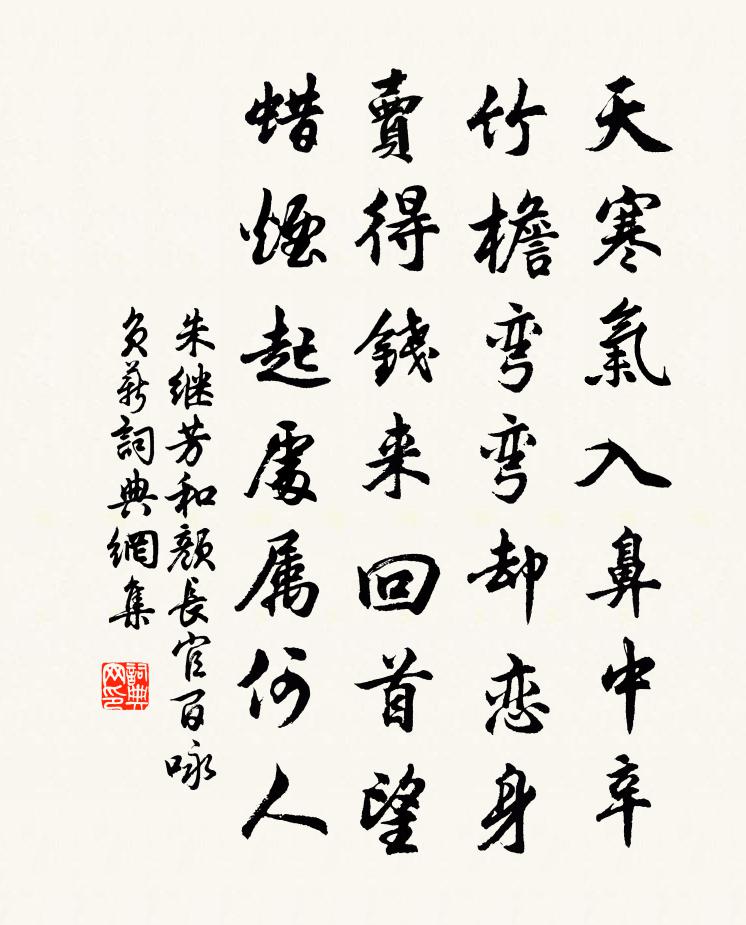 天寒氣入鼻中辛
竹檐弯弯却恋身
賣得錢来回首望
蜡煙起處属何人
朱继芳和颜長官百咏
负薪詞典網集
詞典网印